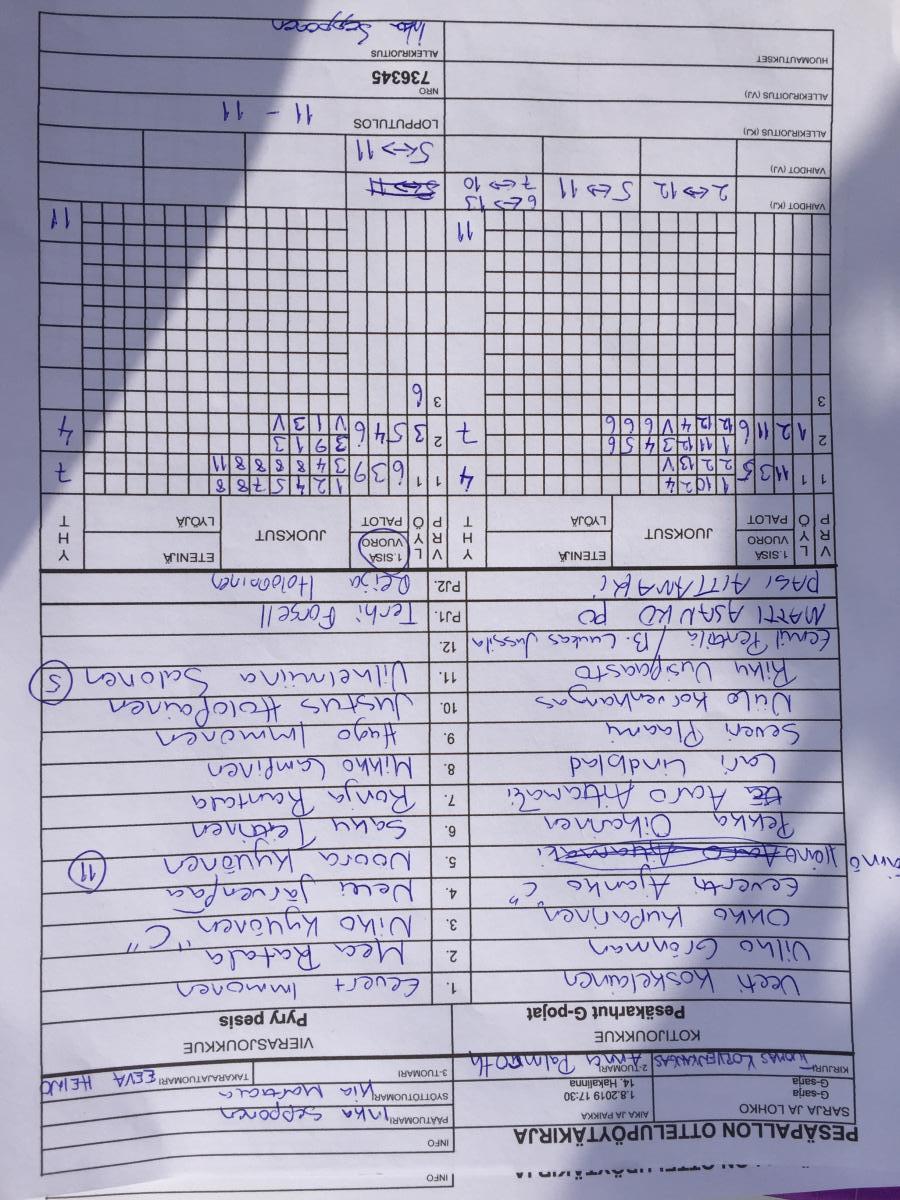 PESÄPALLON OTTELUPÖYTÄKIRJA
INFO
INFO
SARJA JA LOHKO
G-sarja
G-sarja
AIKA JA PAIKKA
1.8.2019 17:30
14, Hakalinna
PÄÄTUOMARI Inka Sepponen
SYÖTTÖTUOMARI Kia
KIRJURI TUOMAS
2-TUOMARI Anna Palmroth
3-TUOMARI
TAKARAJATUOMARI EEVA HEINO
KOTIJOUKKUE
Pesäkarhut G-pojat
VIERASJOUKKUE
Pyry pesis
Veeti Koskelainen 1. Eevert Immonen
Vilho Grönman 2. Mea Ratala
Okko Kuparinen 3. Niko Kyyönen "C"
Eevertti Ajanko "C" 4. Neei Järvenpää
Väinö 5. Noora Kyyönen 11
Pekka Oikarinen 6. Saku
Aaro Aittamäki 7. Ronja Rantala
Lari Lindblad 8. Mikko Lampinen
Severi Plaami 9. Hugo Immonen
Niilo Korvenkangas 10. Justus Holopainen
Riku Uusipaasto 11. Vilhelmiina Salonen 5
Eemil Penttilä / B. Luukas Jussila 12.
MATTI ASANKO PO PJ1. Terhi Forsell
PASI AITTAMÄKI PJ2. Reija Holopainen
V P R L Y Ö 1.SISÄ VUORO PALOT JUOKSUT ETENIJÄ LYÖJÄ Y H T V P R L Y Ö 1.SISÄ VUORO PALOT JUOKSUT ETENIJÄ LYÖJÄ Y H T
1 1 11 3 5 1 10 2 4 4 1 1 6 3 9 1 2 4 5 7 8 8 7
2 2 13 V 3 4 8 6 8 8 11
2 1 2 11 6 1 11 12 3 4 5 6 7 2 3 5 4 6 3 9 1 3 4
12 12 4 V 6 6 6 V 1 3 V
3 3 6
11 11
VAIHDOT (KJ) 2<->12 5<->11 6<->13
7<->10
VAIHDOT (VJ) 5<->11
ALLEKIRJOITUS (KJ)
LOPPUTULOS 11 - 11
ALLEKIRJOITUS (VJ)
NRO
736345
HUOMAUTUKSET
ALLEKIRJOITUS
Inka Sepponen